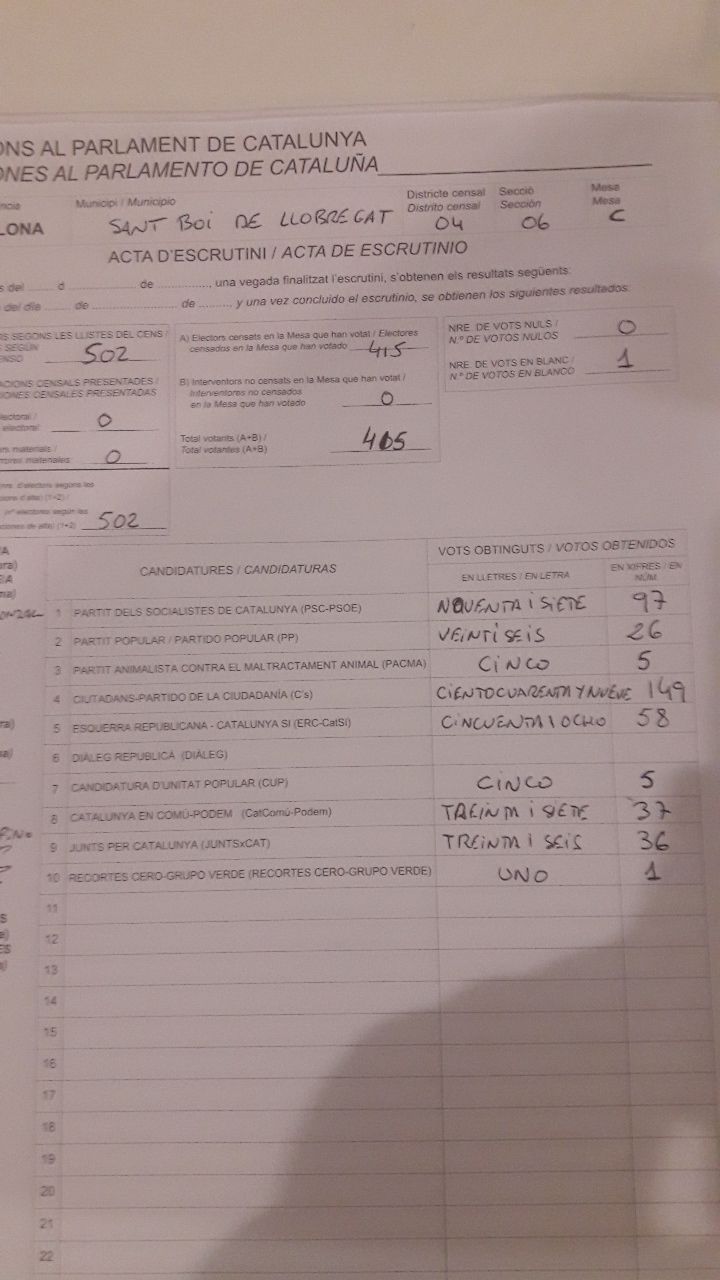 ONS AL PARLAMENT DE CATALUNYA
ONES AL PARLAMENTO DE CATALUÑA
ncia Municipi / Municipio Districte censal Secció Mesa
Distrito censal Sección Mesa
LONA SANT BOI DE LLOBREGAT 04 06 C
ACTA D'ESCRUTINI / ACTA DE ESCRUTINIO
s del ...... d ............ de ............, una vegada finalitzat l'escrutini, s'obtenen els resultats següents:
del día ...... de ............ de ........ y una vez concluido el escrutinio, se obtienen los siguientes resultados:
S SEGONS LES LLISTES DEL CENS /
SEGÚN
ENSO 502
ACIONS CENSALS PRESENTADES /
IONES CENSALES PRESENTADAS
lectoral /
electoral 0
materials /
materiales 0
502
A) Electors censats en la Mesa que han votat / Electores
censados en la Mesa que han votado 415
B) Interventors no censats en la Mesa que han votat /
Interventores no censados
en la Mesa que han votado 0
Total votants (A+B) /
Total votantes (A+B) 415
NRE. DE VOTS NULS /
N.º DE VOTOS NULOS 0
NRE. DE VOTS EN BLANC /
N.º DE VOTOS EN BLANCO 1
CANDIDATURES / CANDIDATURAS VOTS OBTINGUTS / VOTOS OBTENIDOS
EN LLETRES / EN LETRA EN XIFRES / EN NÚM.
1 PARTIT DELS SOCIALISTES DE CATALUNYA (PSC-PSOE) NOVENTA I SIETE 97
2 PARTIT POPULAR / PARTIDO POPULAR (PP) VEINTISEIS 26
3 PARTIT ANIMALISTA CONTRA EL MALTRACTAMENT ANIMAL (PACMA) CINCO 5
4 CIUTADANS-PARTIDO DE LA CIUDADANÍA (C's) CIENTOCUARENTA Y NUEVE 149
5 ESQUERRA REPUBLICANA - CATALUNYA SÍ (ERC-CatSí) CINCUENTA I OCHO 58
6 DIÀLEG REPUBLICÀ (DIÀLEG)
7 CANDIDATURA D'UNITAT POPULAR (CUP) CINCO 5
8 CATALUNYA EN COMÚ-PODEM (CatComú-Podem) TREINTA I SIETE 37
9 JUNTS PER CATALUNYA (JUNTSxCAT) TREINTA I SEIS 36
10 RECORTES CERO-GRUPO VERDE (RECORTES CERO-GRUPO VERDE) UNO 1
11
12
13
14
15
16
17
18
19
20
21
22